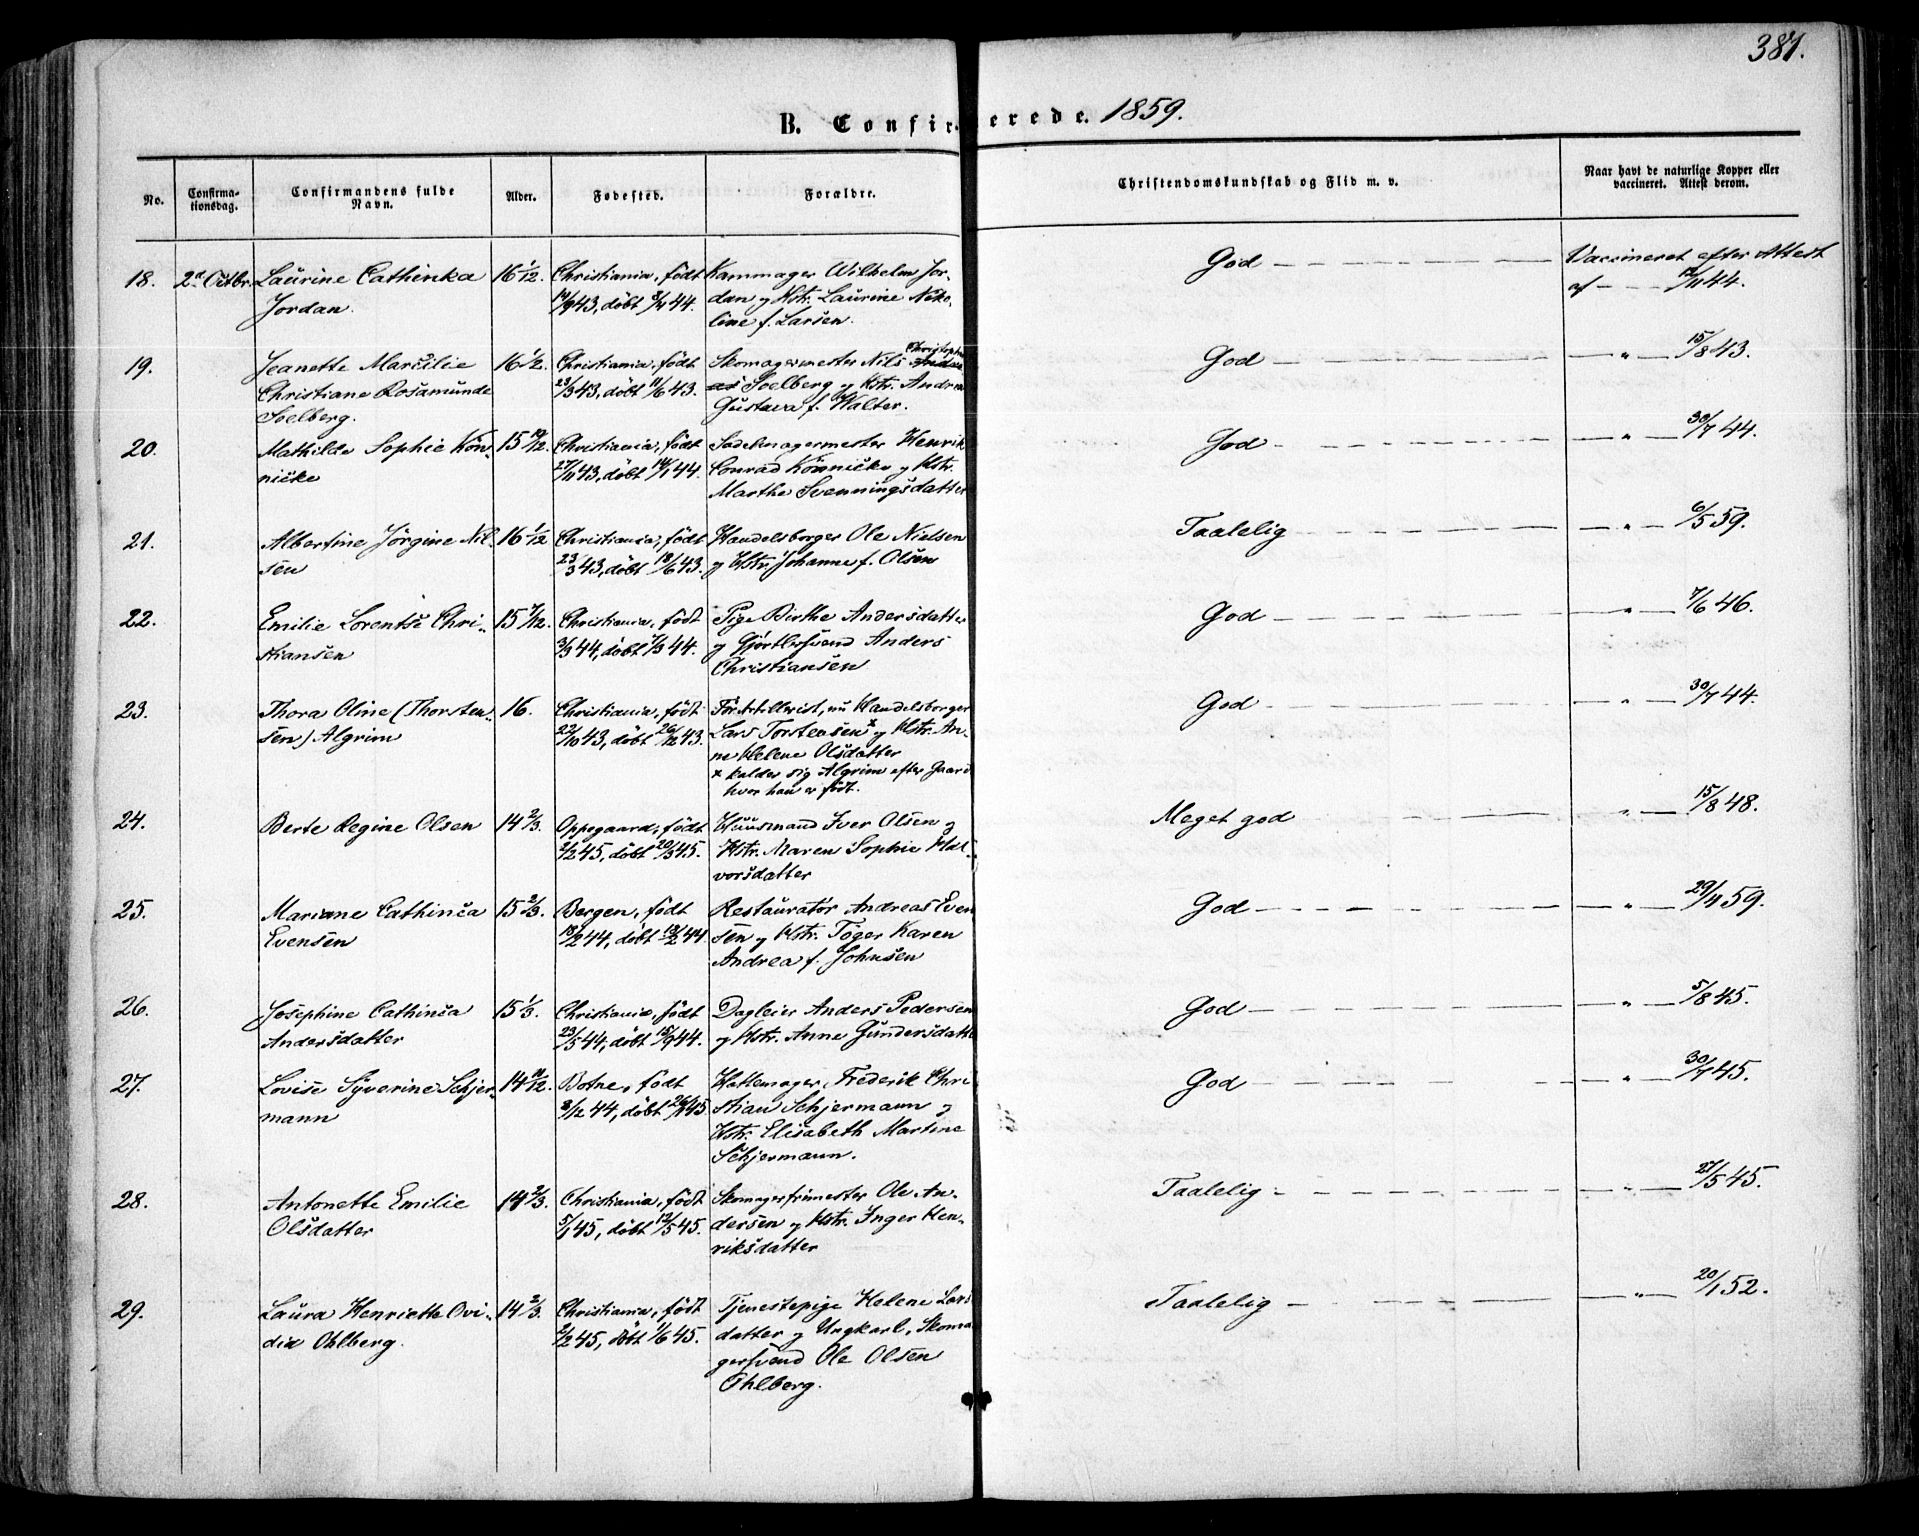 381.
B. Confirmerede. 1859.
No.
Confirma-
tionsdag.
Confirmandens fulde
Navn.
Alder.
Fødested.
Forældre.
Christendomskundskab og Flid m. v.
Naar havt de naturlige Kopper eller
vaccineret. Attest derom.
18. 2d Octbr. Laurine Cathinka 16 1/12. Christiania, født Kammager Wilhelm Jor- God Vaccineret efter Attest
Jordan. 14/9 43, døbt 8/4 44. dan og Hstr. Laurine Niko- af 12/11 44.
line f. Larsen.
19. Jeanette Marcilie 16 1/2. Christiania, født Skomagermester Nils Christopher God " 15/8 43.
Christiane Rosamunde 23/3 43, døbt 11/6 43. Soelberg og Hstr. Andrea
Soelberg. Gustava f. Walter.
20. Mathilde Sophie Kön- 15 10/12. Christiania, født Sadelmagermester Henrik God " 30/7 44.
nicke 27/11 43, døbt 14/1 44. Conrad Könnicke og Hstr.
Marthe Svenningsdatter
21. Albertine Jörgine Nil- 16 1/12 Christiania, født Handelsborger Ole Nielsen Taalelig " 6/5 59.
sen 23/3 43, døbt 18/6 43. og Hstr. Johanne f. Olsen
22. Emilie Lorentse Chri- 15 7/12. Christiania, født Pige Birthe Andersdatter God " 7/6 46.
stiansen 3/3 44, døbt 7/3 44. og Gjørtlersvend Anders
Christiansen
23. Thora Oline (Thorsten- 16. Christiania, født Før Artillerist, nu Handelsborger God " 30/7 44.
sen) Algrim 22/10 43, døbt 26/12 43. Lars Torstensen x og Hstr. An-
ne Helene Olsdatter
x kalder sig Algrim efter Gaard
hvor han er født.
24. Berte Regine Olsen 14 2/3. Oppegaard, født Huusmand Iver Olsen og Meget god " 15/8 48.
2/2 45, døbt 20/3 45. Hstr. Maren Sophie Hal-
vorsdatter
25. Mariane Cathinca 15 2/3. Bergen, født Restauratør Andreas Even God " 29/4 59.
Evensen 13/2 44, døbt 13/2 44. sen og Hstr. Töger Karen
Andrea f. Johnsen
26. Josephine Cathinca 15 1/3. Christiania, født Dagleier Anders Pedersen God " 5/8 45.
Andersdatter 23/5 44, døbt 15/9 44. og Hstr. Anne Gundersdatte
27. Lovise Syverine Schjer- 14 10/12. Botne, født Hattemager Frederik Chri God " 30/7 45.
mann 8/12 44, døbt 26/1 45 stian Schjermann og
Hstr. Elisabeth Martine
Schjermann.
28. Antonette Emilie 14 2/3. Christiania, født Skomagerfrimester Ole An- Taalelig " 27/5 45.
Olsdatter 5/1 45, døbt 12/5 45. dersen og Hstr. Inger Hen-
riksdatter
29. Laura Henriette Ovi- 14 2/3. Christiania, født Tjenestepige Helene Lars Taalelig " 20/1 52.
dia Ohlberg. 2/2 45, døbt 1/6 45. datter og Ungkarl, Skoma
gersvend Ole Olsen
Ohlberg.